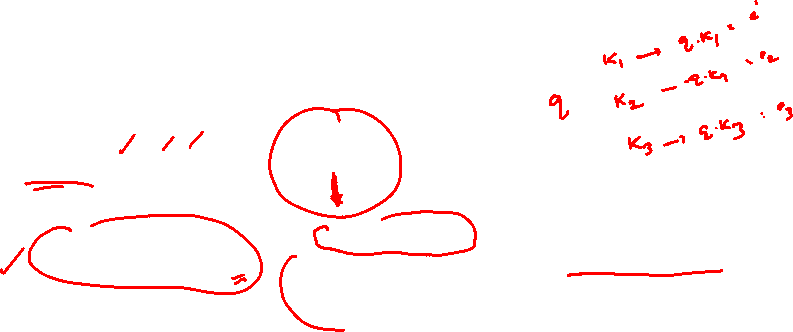 K₁ → q·K₁ = e¹
q K₂ → q·K₂ = e₂
K₃ → q·K₃ = e₃